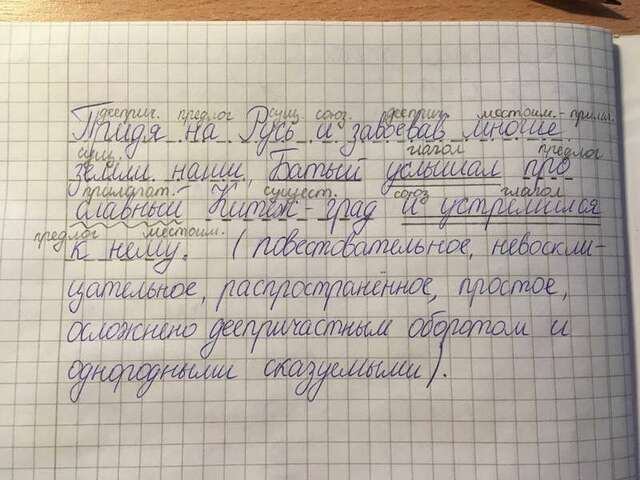 дееприч. предлог сущ. союз. дееприч. местоим.-прилаг.
Придя на Русь и завоевав многие
сущ. глагол предлог
земли наши, Батый услышал про
прилагат. сущест. союз глагол
славный Китеж-град и устремился
предлог местоим.
к нему. (повествовательное, невоскли-
цательное, распространённое, простое,
осложнено деепричастным оборотом и
однородными сказуемыми).